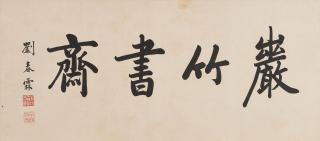 巖竹書齋
劉春霖